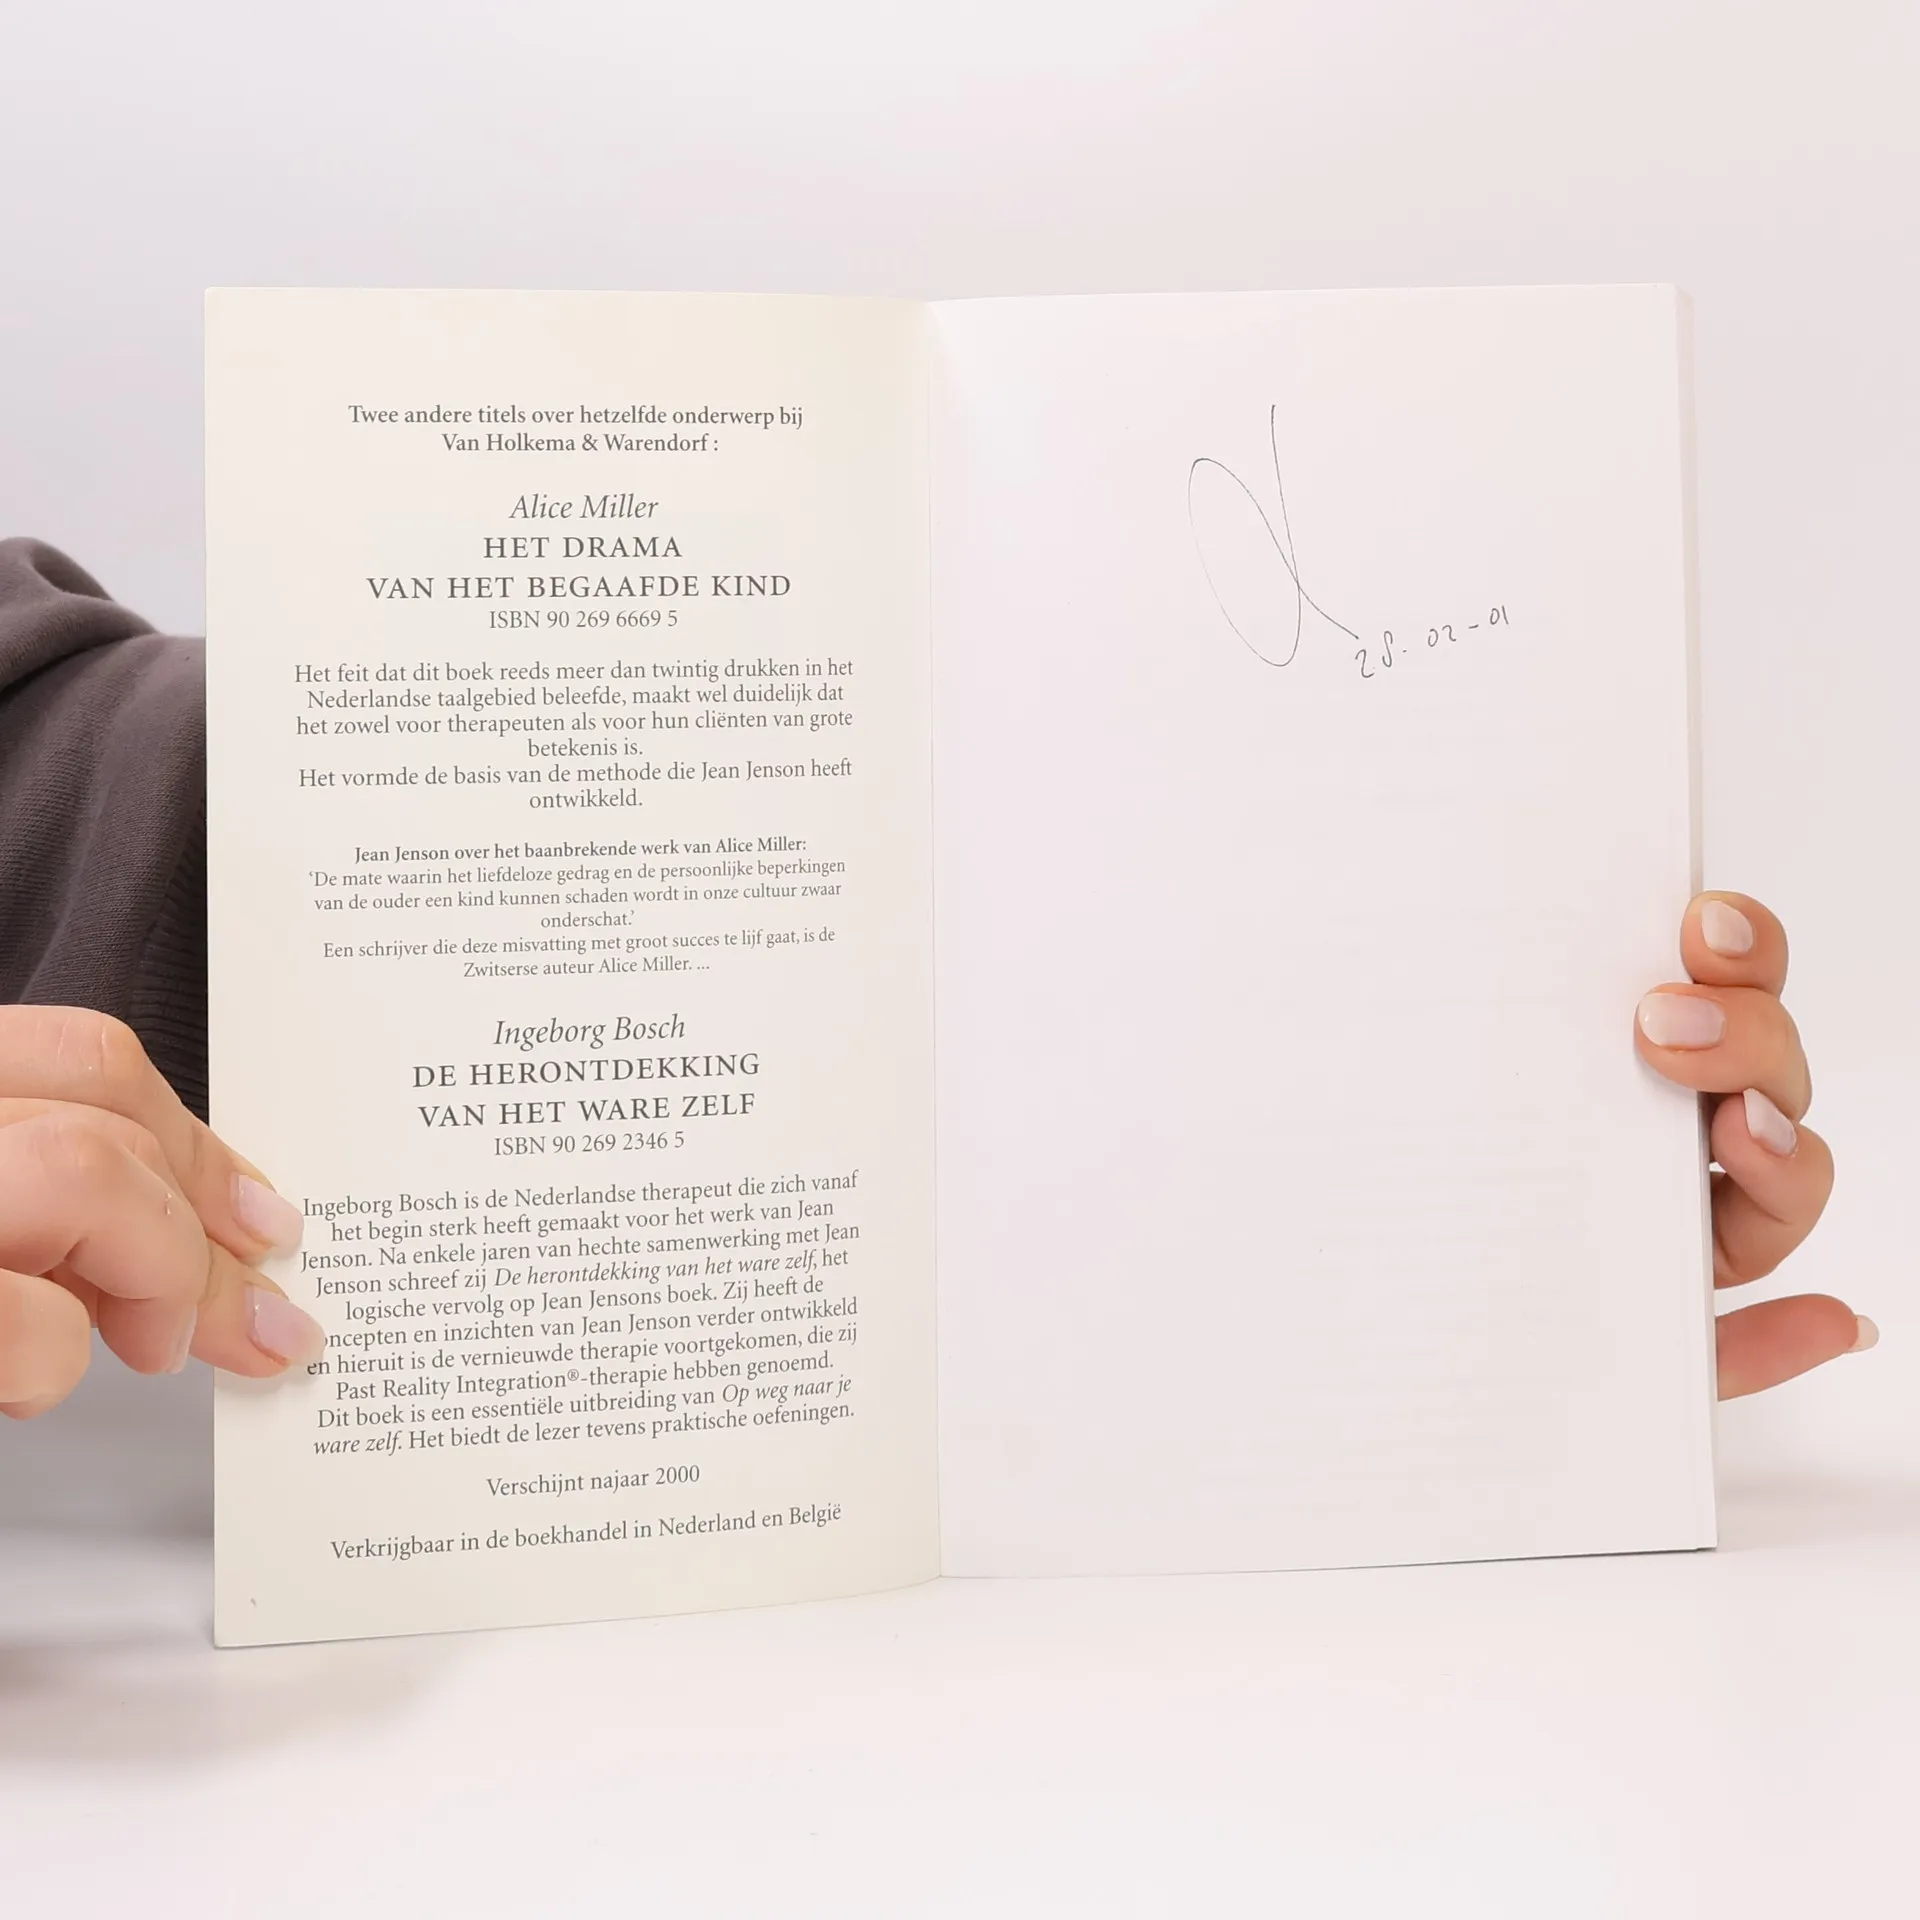 Twee andere titels over hetzelfde onderwerp bij
Van Holkema & Warendorf :
Alice Miller
HET DRAMA
VAN HET BEGAAFDE KIND
ISBN 90 269 6669 5
Het feit dat dit boek reeds meer dan twintig drukken in het
Nederlandse taalgebied beleefde, maakt wel duidelijk dat
het zowel voor therapeuten als voor hun cliënten van grote
betekenis is.
Het vormde de basis van de methode die Jean Jenson heeft
ontwikkeld.
Jean Jenson over het baanbrekende werk van Alice Miller:
‘De mate waarin het liefdeloze gedrag en de persoonlijke beperkingen
van de ouder een kind kunnen schaden wordt in onze cultuur zwaar
onderschat.’
Een schrijver die deze misvatting met groot succes te lijf gaat, is de
Zwitserse auteur Alice Miller. ...
Ingeborg Bosch
DE HERONTDEKKING
VAN HET WARE ZELF
ISBN 90 269 2346 5
Ingeborg Bosch is de Nederlandse therapeut die zich vanaf
het begin sterk heeft gemaakt voor het werk van Jean
Jenson. Na enkele jaren van hechte samenwerking met Jean
Jenson schreef zij De herontdekking van het ware zelf, het
logische vervolg op Jean Jensons boek. Zij heeft de
oncepten en inzichten van Jean Jenson verder ontwikkeld
en hieruit is de vernieuwde therapie voortgekomen, die zij
Past Reality Integration®-therapie hebben genoemd.
Dit boek is een essentiële uitbreiding van Op weg naar je
ware zelf. Het biedt de lezer tevens praktische oefeningen.
Verschijnt najaar 2000
Verkrijgbaar in de boekhandel in Nederland en België
28. 02-01